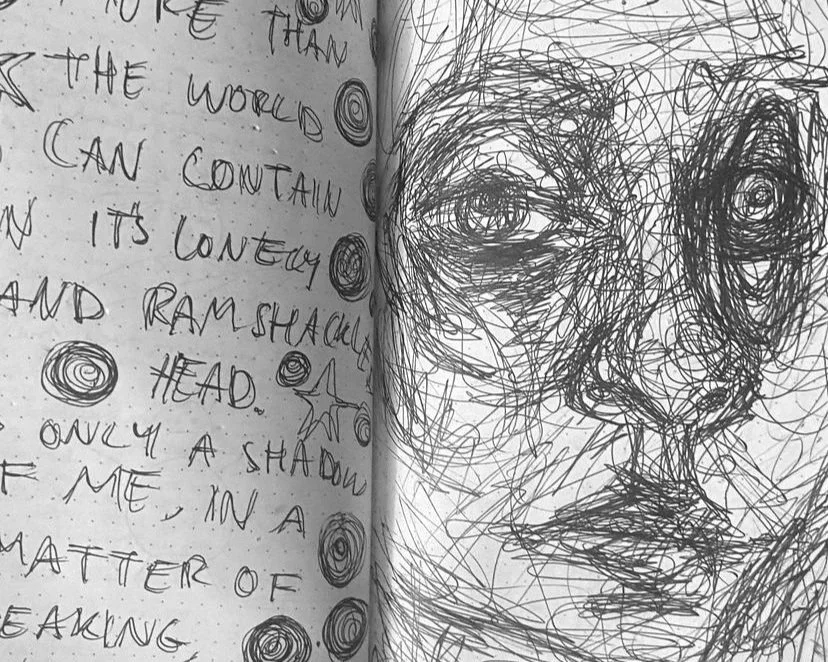 MORE THAN
THE WORLD
CAN CONTAIN
N IT'S LONELY
AND RAMSHACKLE
HEAD.
ONLY A SHADOW
F ME, IN A
MATTER OF
EAKING,